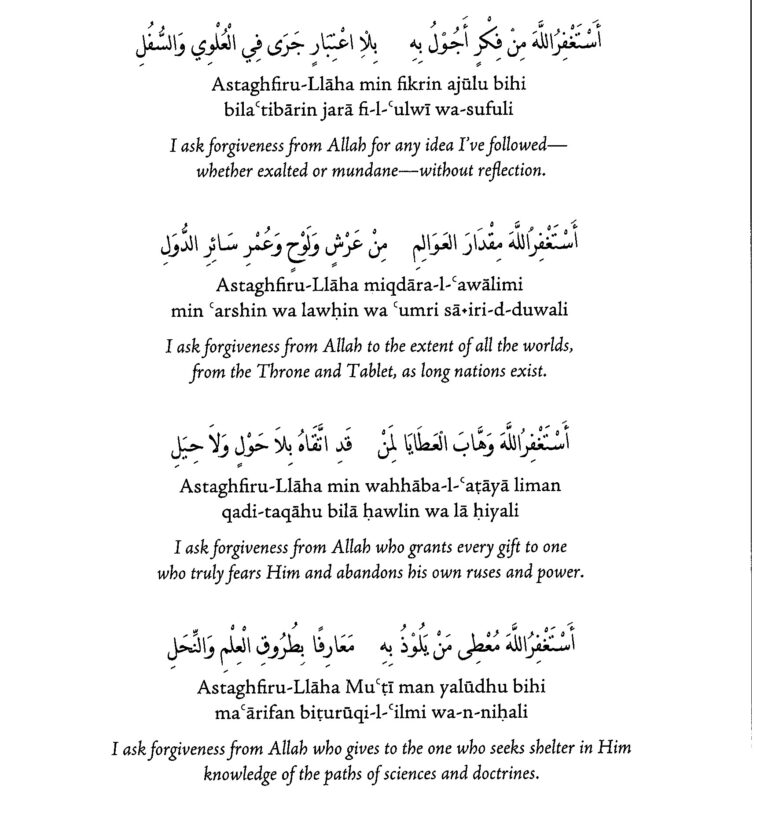 أَسْتَغْفِرُاللَّهَ مِنْ فِكْرٍ أَجُوْلُ بِهِ بِلاِ اعْتِبَارٍ جَرَى فِي الْعُلْوِي وَالسُّفُلِ
Astaghfiru-Llāha min fikrin ajūlu bihi
bilaʿtibārin jarā fi-l-ʿulwī wa-sufuli
I ask forgiveness from Allah for any idea I’ve followed—
whether exalted or mundane—without reflection.
أَسْتَغْفِرُاللَّهَ مِقْدَارَ العَوَالِمِ مِنْ عَرْشٍ وَلَوْحٍ وَعُمْرِ سَائِرِ الدُّوَلِ
Astaghfiru-Llāha miqdāra-l-ʿawālimi
min ʿarshin wa lawḥin wa ʿumri sā•iri-d-duwali
I ask forgiveness from Allah to the extent of all the worlds,
from the Throne and Tablet, as long nations exist.
أَسْتَغْفِرُاللَّهَ وَهَّابَ الْعَطَايَا لِمَنْ قَدِ اتَّقَاهُ بِلاَ حَوْلٍ وَلاَ حِيَلِ
Astaghfiru-Llāha min wahhāba-l-ʿaṭāyā liman
qadi-taqāhu bilā ḥawlin wa lā ḥiyali
I ask forgiveness from Allah who grants every gift to one
who truly fears Him and abandons his own ruses and power.
أَسْتَغْفِرُاللَّهَ مُعْطِى مَنْ يَلُوْذُ بِهِ مَعَارِفًا بِطُرُوقِ الْعِلْمِ وَالنِّحَلِ
Astaghfiru-Llāha Muʿṭī man yalūdhu bihi
maʿārifan biṭurūqi-l-ʿilmi wa-n-niḥali
I ask forgiveness from Allah who gives to the one who seeks shelter in Him
knowledge of the paths of sciences and doctrines.